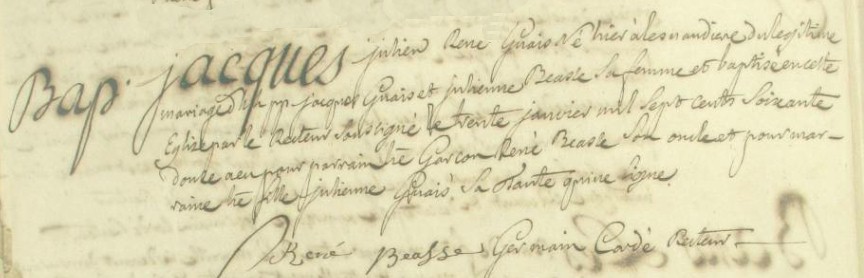 Bap. jacques julien René Guais Né hier à du legitime
mariage d'h. pp. jacques Guais et julienne Beasse sa femme et baptisé en cette
Eglise par le Recteur soussigné le trente janvier mil sept cents soixante
douze a eu pour parrain hé. Garcon René Beasse son oncle et pour mar-
raine hé. fille julienne Guais sa tante qui ne signe.
René Beasse Germain Cordé Recteur